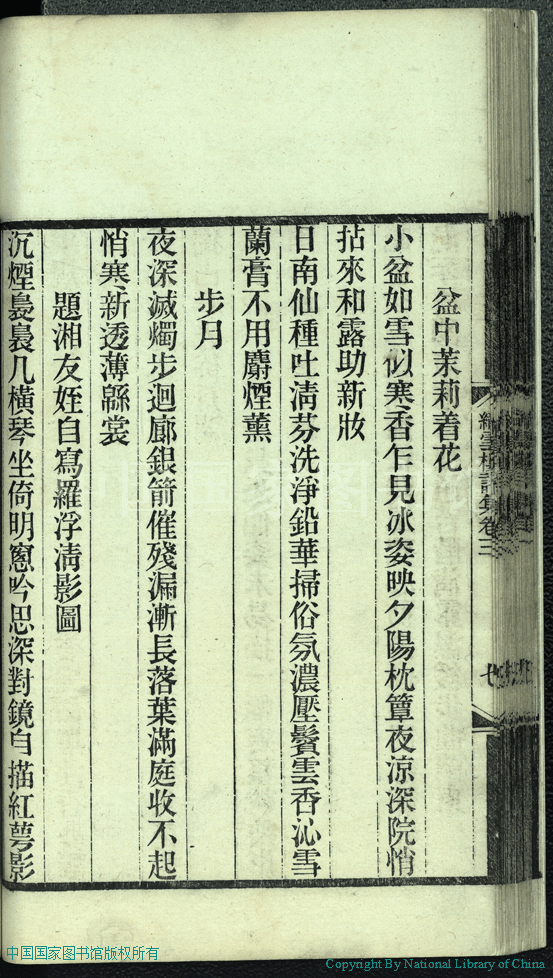 盆中茉莉着花
小盆如雪似寒香乍見冰姿映夕陽枕簟夜涼深院悄
拈來和露助新妝
日南仙種吐清芬洗淨鉛華掃俗氛濃壓鬢雲香沁雪
蘭膏不用麝煙薰
步月
夜深滅燭步迴廊銀箭催殘漏漸長落葉滿庭收不起
悄寒新透薄緜裳
題湘友姪自寫羅浮淸影圖
沉煙裊裊几橫琴坐倚明窻吟思深對鏡自描紅萼影
中国国家图书馆版权所有
Copyright By National Library of China